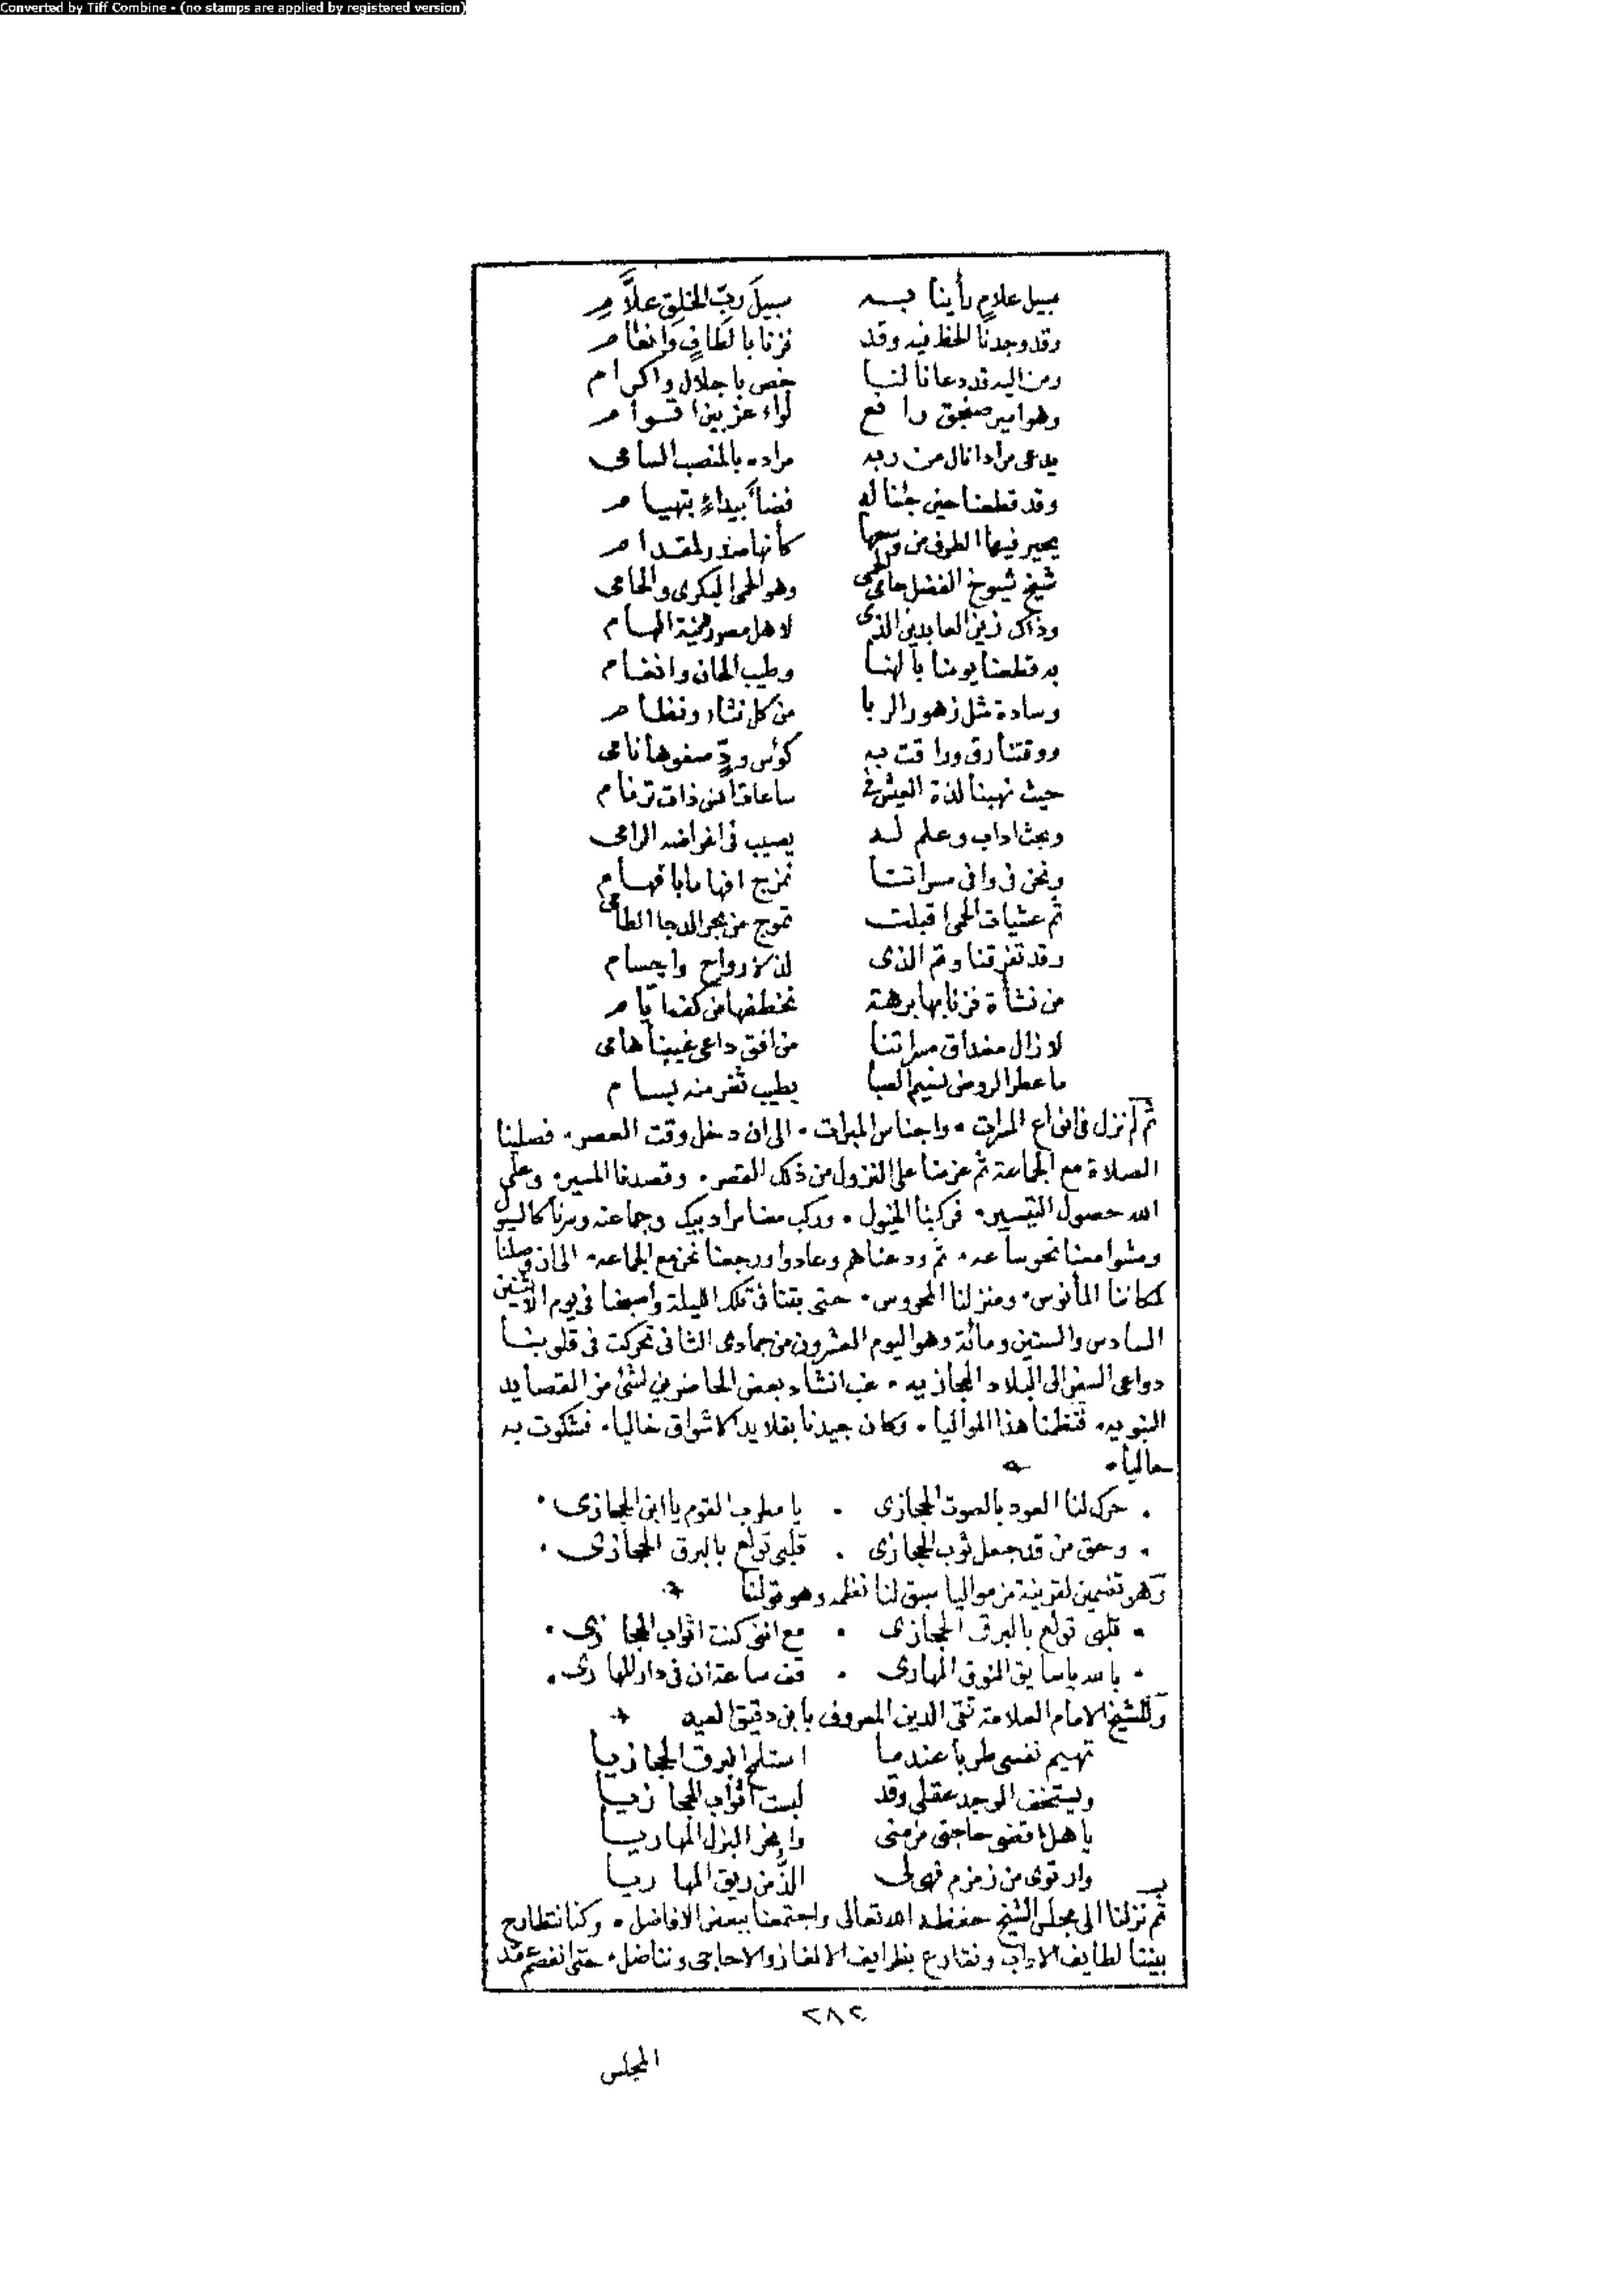 Converted by Tiff Combine - (no stamps are applied by registered version)
سبيل علام رأينا به سبيلَ ربِّ الخلقِ علَّامِ
وقد وجدنا الحظ فيه وقد فزنا بالطافٍ وانعام
ومن اليه قد دعانا لنا خص باجلال واكرام
وهو امير صنجق رافع لواء عز بين اقوام
يدعى مراد انال من ربه مراده بالمنصب السامى
وقد قطعنا حين جئنا له فضاء بيداءٍ بتهيام
يحير فيها الطرف من وسعها كأنها صدر لمقدام
شيخ شيوخ الفضل حامى الحمى وهو الحمى البكرى والحامى
وذاك زين العابدين الذى لاهل مصر الهمام
به قطعنا يومنا بالهنا وطيب الحان وانغام
وسادة مثل زهور الربا من كل نثار ونظام
ووقتنا رق وراقت به كؤس ودٍّ صفوها نامى
حيث نهبنا لذة العيش فى ساعات ذات ترنام
وبحث اداب وعلم له يصيب فى اغراضه الرامى
ونحن فى وافى مسراتنا نمزج افهاما بافهام
ثم عشيات الحمى اقبلت تموج من بحر الدجا الطامى
وقد تفرقنا وتم الذى لذ لارواح واجسام
من نشأة فزنا بها برهة نخطفها من كف ايام
لا زال مغداق مسراتنا من افق داعى غيبنا هامى
ما عطر الروض نسيم الصبا بطيب ثغر منه بسام
ثم لم نزل فى انواع المسرات • واجناس المبرات • الى ان دخل وقت العصر • فصلينا
الصلاة مع الجماعة ثم عزمنا على النزول من ذلك القصر • وقصدنا المسير • وعلى
الله حصول التيسير • فركبنا الخيول • وركب معنا مراد بيك وجماعته وسرنا كالسيول
ومشوا معنا نحو ساعه • ثم ودعناهم وعادوا ورجعنا نحن مع الجماعه • الى ان وصلنا
لمكاننا المأنوس • ومنزلنا المحروس • حتى بتنا فى تلك الليلة وأصبحنا فى يوم الاثنين
السادس والستين ومائة وهو اليوم العشرون من جمادى الثانى تحركت فى قلوبنا
دواعى السفر الى البلاد الحجازيه • غب انشاد بعض الحاضرين لشئ من القصايد
النبويه • فنظمنا هذا المواليا • وكان جيدنا بقلايد الاشواق حاليا • فشكوت به
حاليا •
• حرك لنا العود بالصوت الحجازى • يا مطرب القوم يا ابن الحجازى •
• وحق من قد جعل ثوب الحجازى • قلبى تولع بالبرق الحجازى •
وهو تضمين لقرينة من مواليا سبق لنا نظمه وهو قولنا
• قلبى تولع بالبرق الحجازى • مع اننى كنت اثواب الحجا زى •
• بالله يا سايق النوق المهارى • قف ساعة ان فى دار المها رى •
وللشيخ الامام العلامة تقى الدين المعروف بابن دقيق العيد
تهيم نفسى طربا عندما استلمح البرق الحجازيا
ويستخف الوجد عقلى وقد لبست أثواب الحجا زيا
يا هل اقضى حاجتى من منى وانحر البزل المهاريا
وارتوى من زمزم فهى لى الذُّ من ريق المها ريا
ثم نزلنا الى مجلس الشيخ حفظه الله تعالى واجتمعنا ببعض الافاضل • وكنا نتطارح
بيننا لطايف الاداب ونتقارع بظرايف الالغاز والاحاجى ونتناضل • حتى انفصم عقد
٢٨٢
المجلس